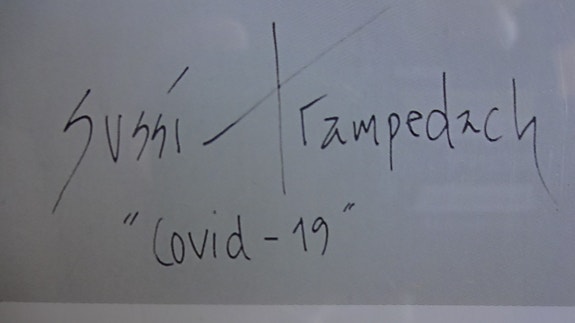 Sussi Trampedach
"Covid-19"